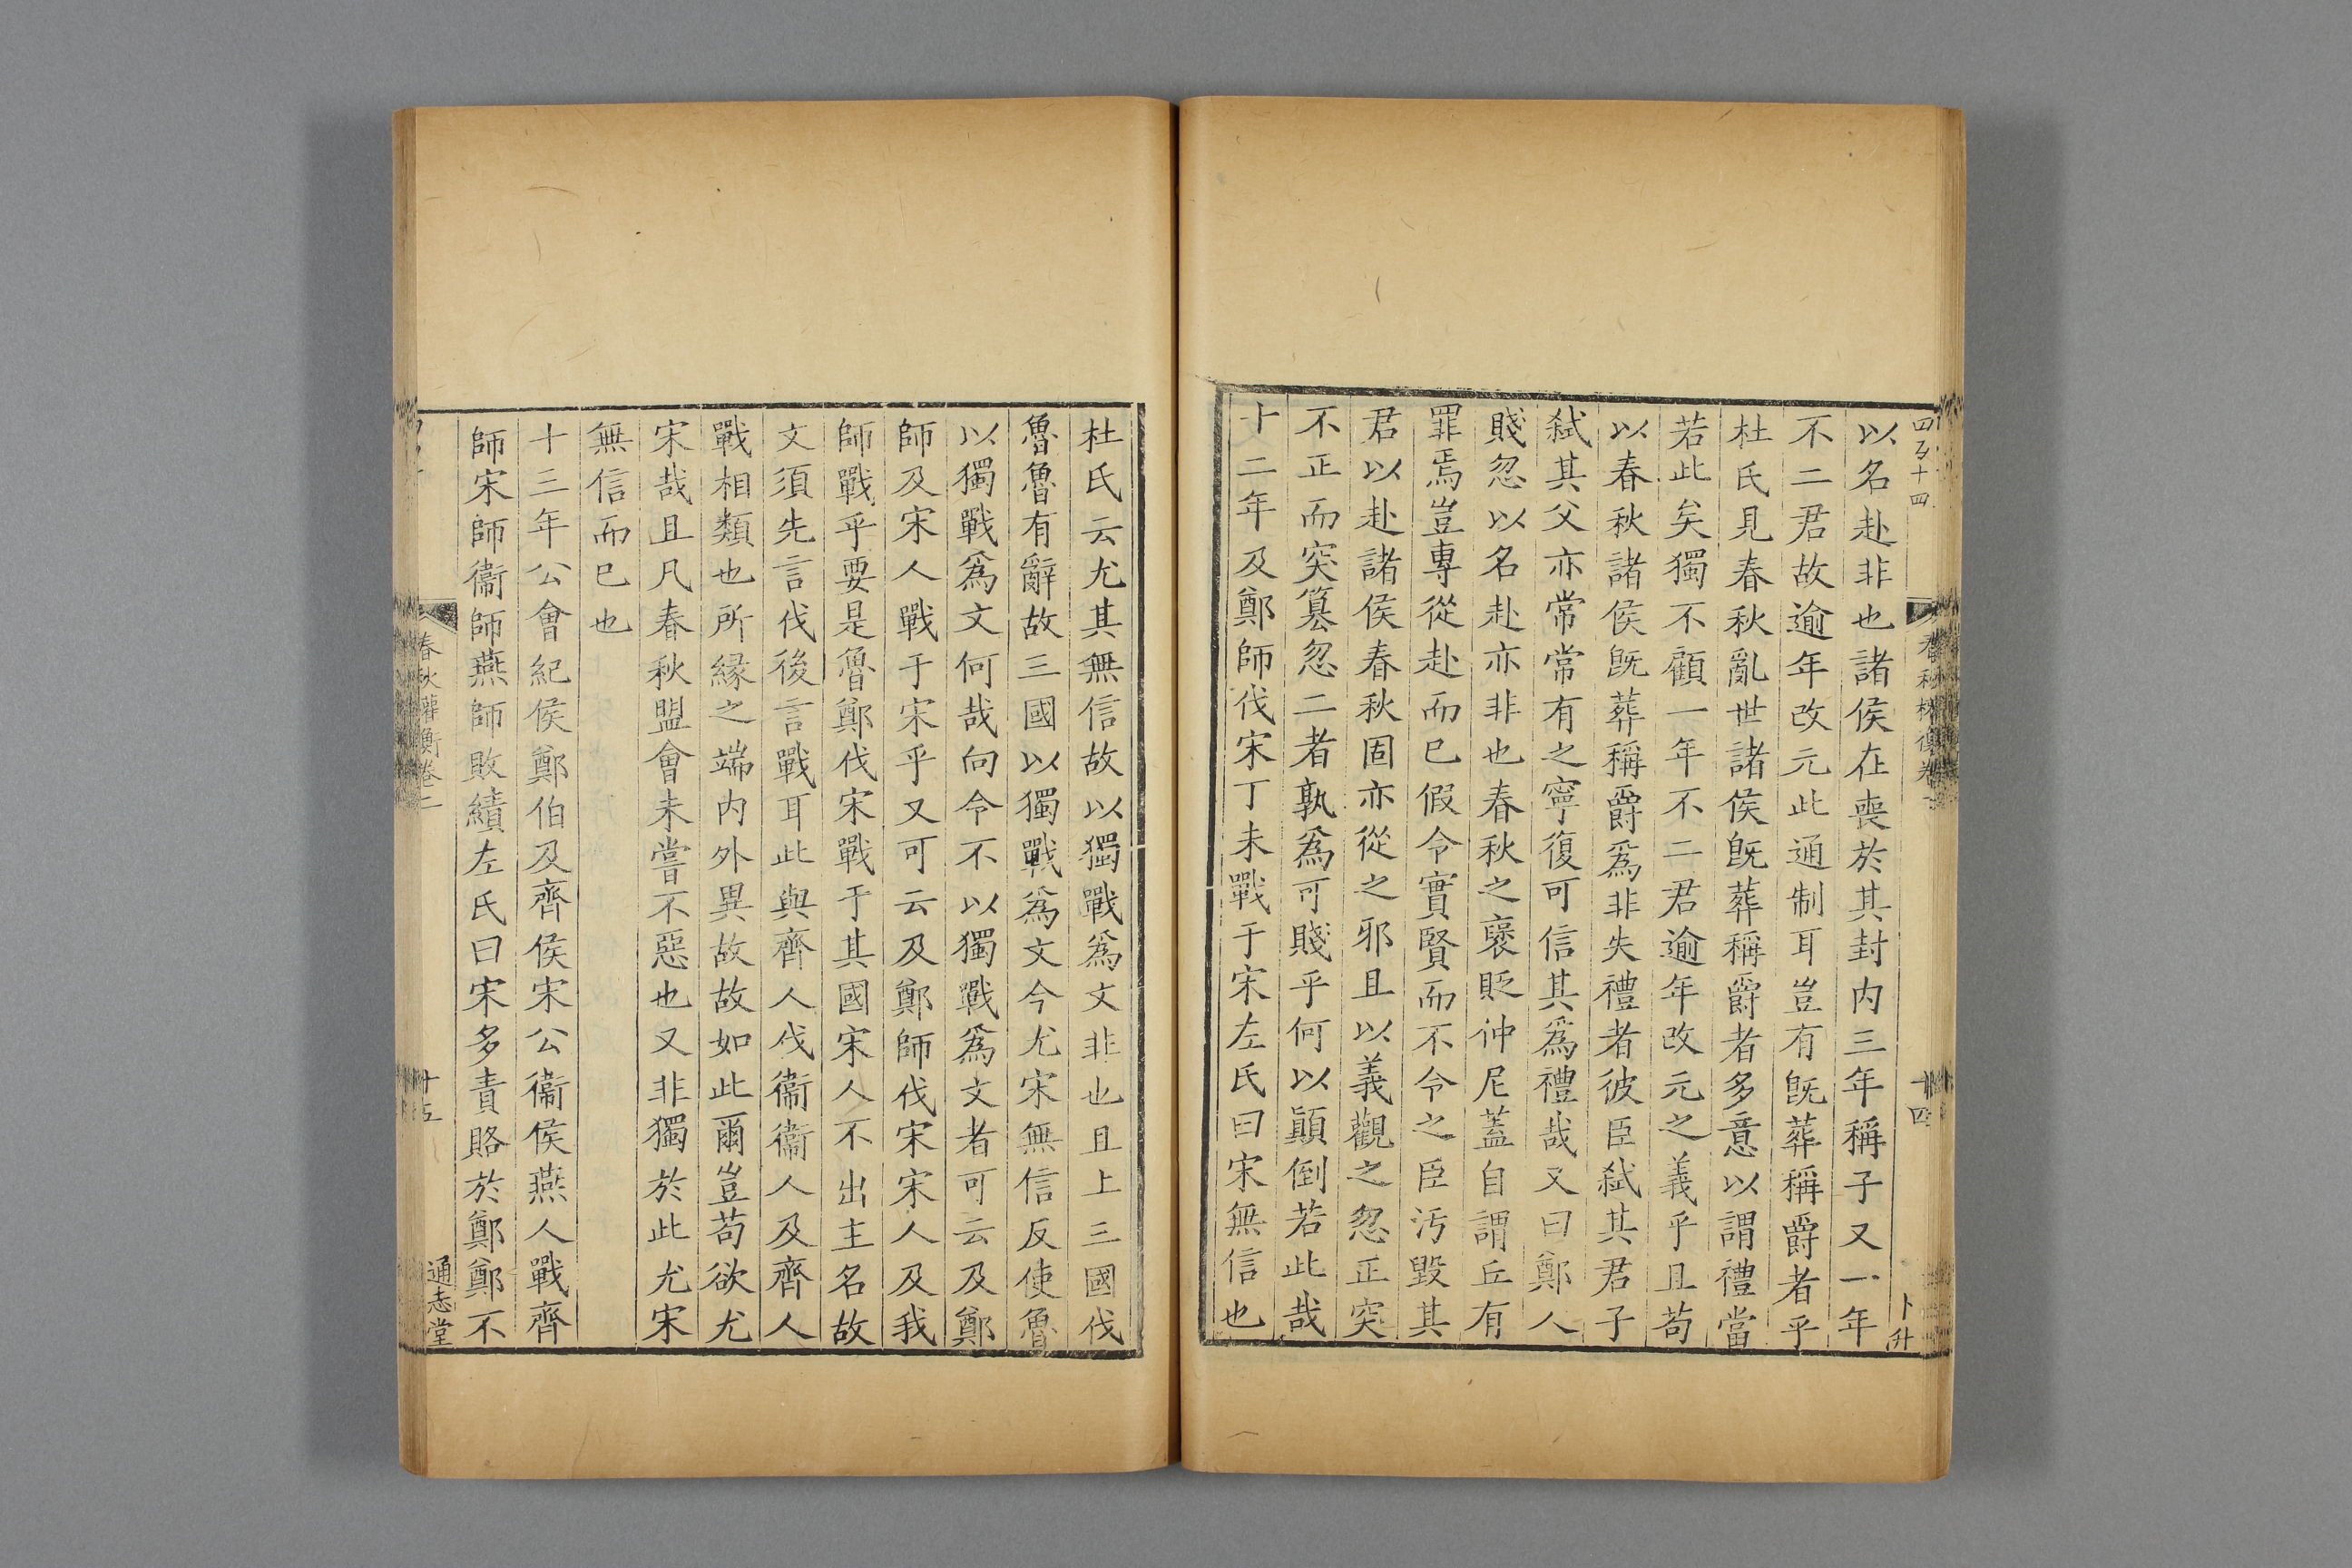 四百十四
春秋權衡卷二
十四
卜升
以名赴非也諸侯在喪於其封内三年稱子又一年
不二君故逾年改元此通制耳豈有旣葬稱爵者乎
杜氏見春秋亂世諸侯旣葬稱爵者多意以謂禮當
若此矣獨不顧一年不二君逾年改元之義乎且苟
以春秋諸侯旣葬稱爵爲非失禮者彼臣弑其君子
弑其父亦常常有之寧復可信其爲禮哉又曰鄭人
賤忽以名赴亦非也春秋之襃貶仲尼蓋自謂丘有
罪焉豈專從赴而已假令實賢而不令之臣汚毀其
君以赴諸侯春秋固亦從之邪且以義觀之忽正突
不正而突簒忽二者孰爲可賤乎何以顚倒若此哉
十二年及鄭師伐宋丁未戰于宋左氏曰宋無信也
杜氏云尤其無信故以獨戰爲文非也且上三國伐
魯魯有辭故三國以獨戰爲文今尤宋無信反使魯
以獨戰爲文何哉向令不以獨戰爲文者可云及鄭
師及宋人戰于宋乎又可云及鄭師伐宋宋人及我
師戰乎要是魯鄭伐宋戰于其國宋人不出主名故
文須先言伐後言戰耳此與齊人伐衞衞人及齊人
戰相類也所縁之端内外異故故如此爾豈苟欲尤
宋哉且凡春秋盟會未嘗不惡也又非獨於此尤宋
無信而已也
十三年公會紀侯鄭伯及齊侯宋公衞侯燕人戰齊
師宋師衞師燕師敗績左氏曰宋多責賂於鄭鄭不
春秋權衡卷二
十五
通志堂